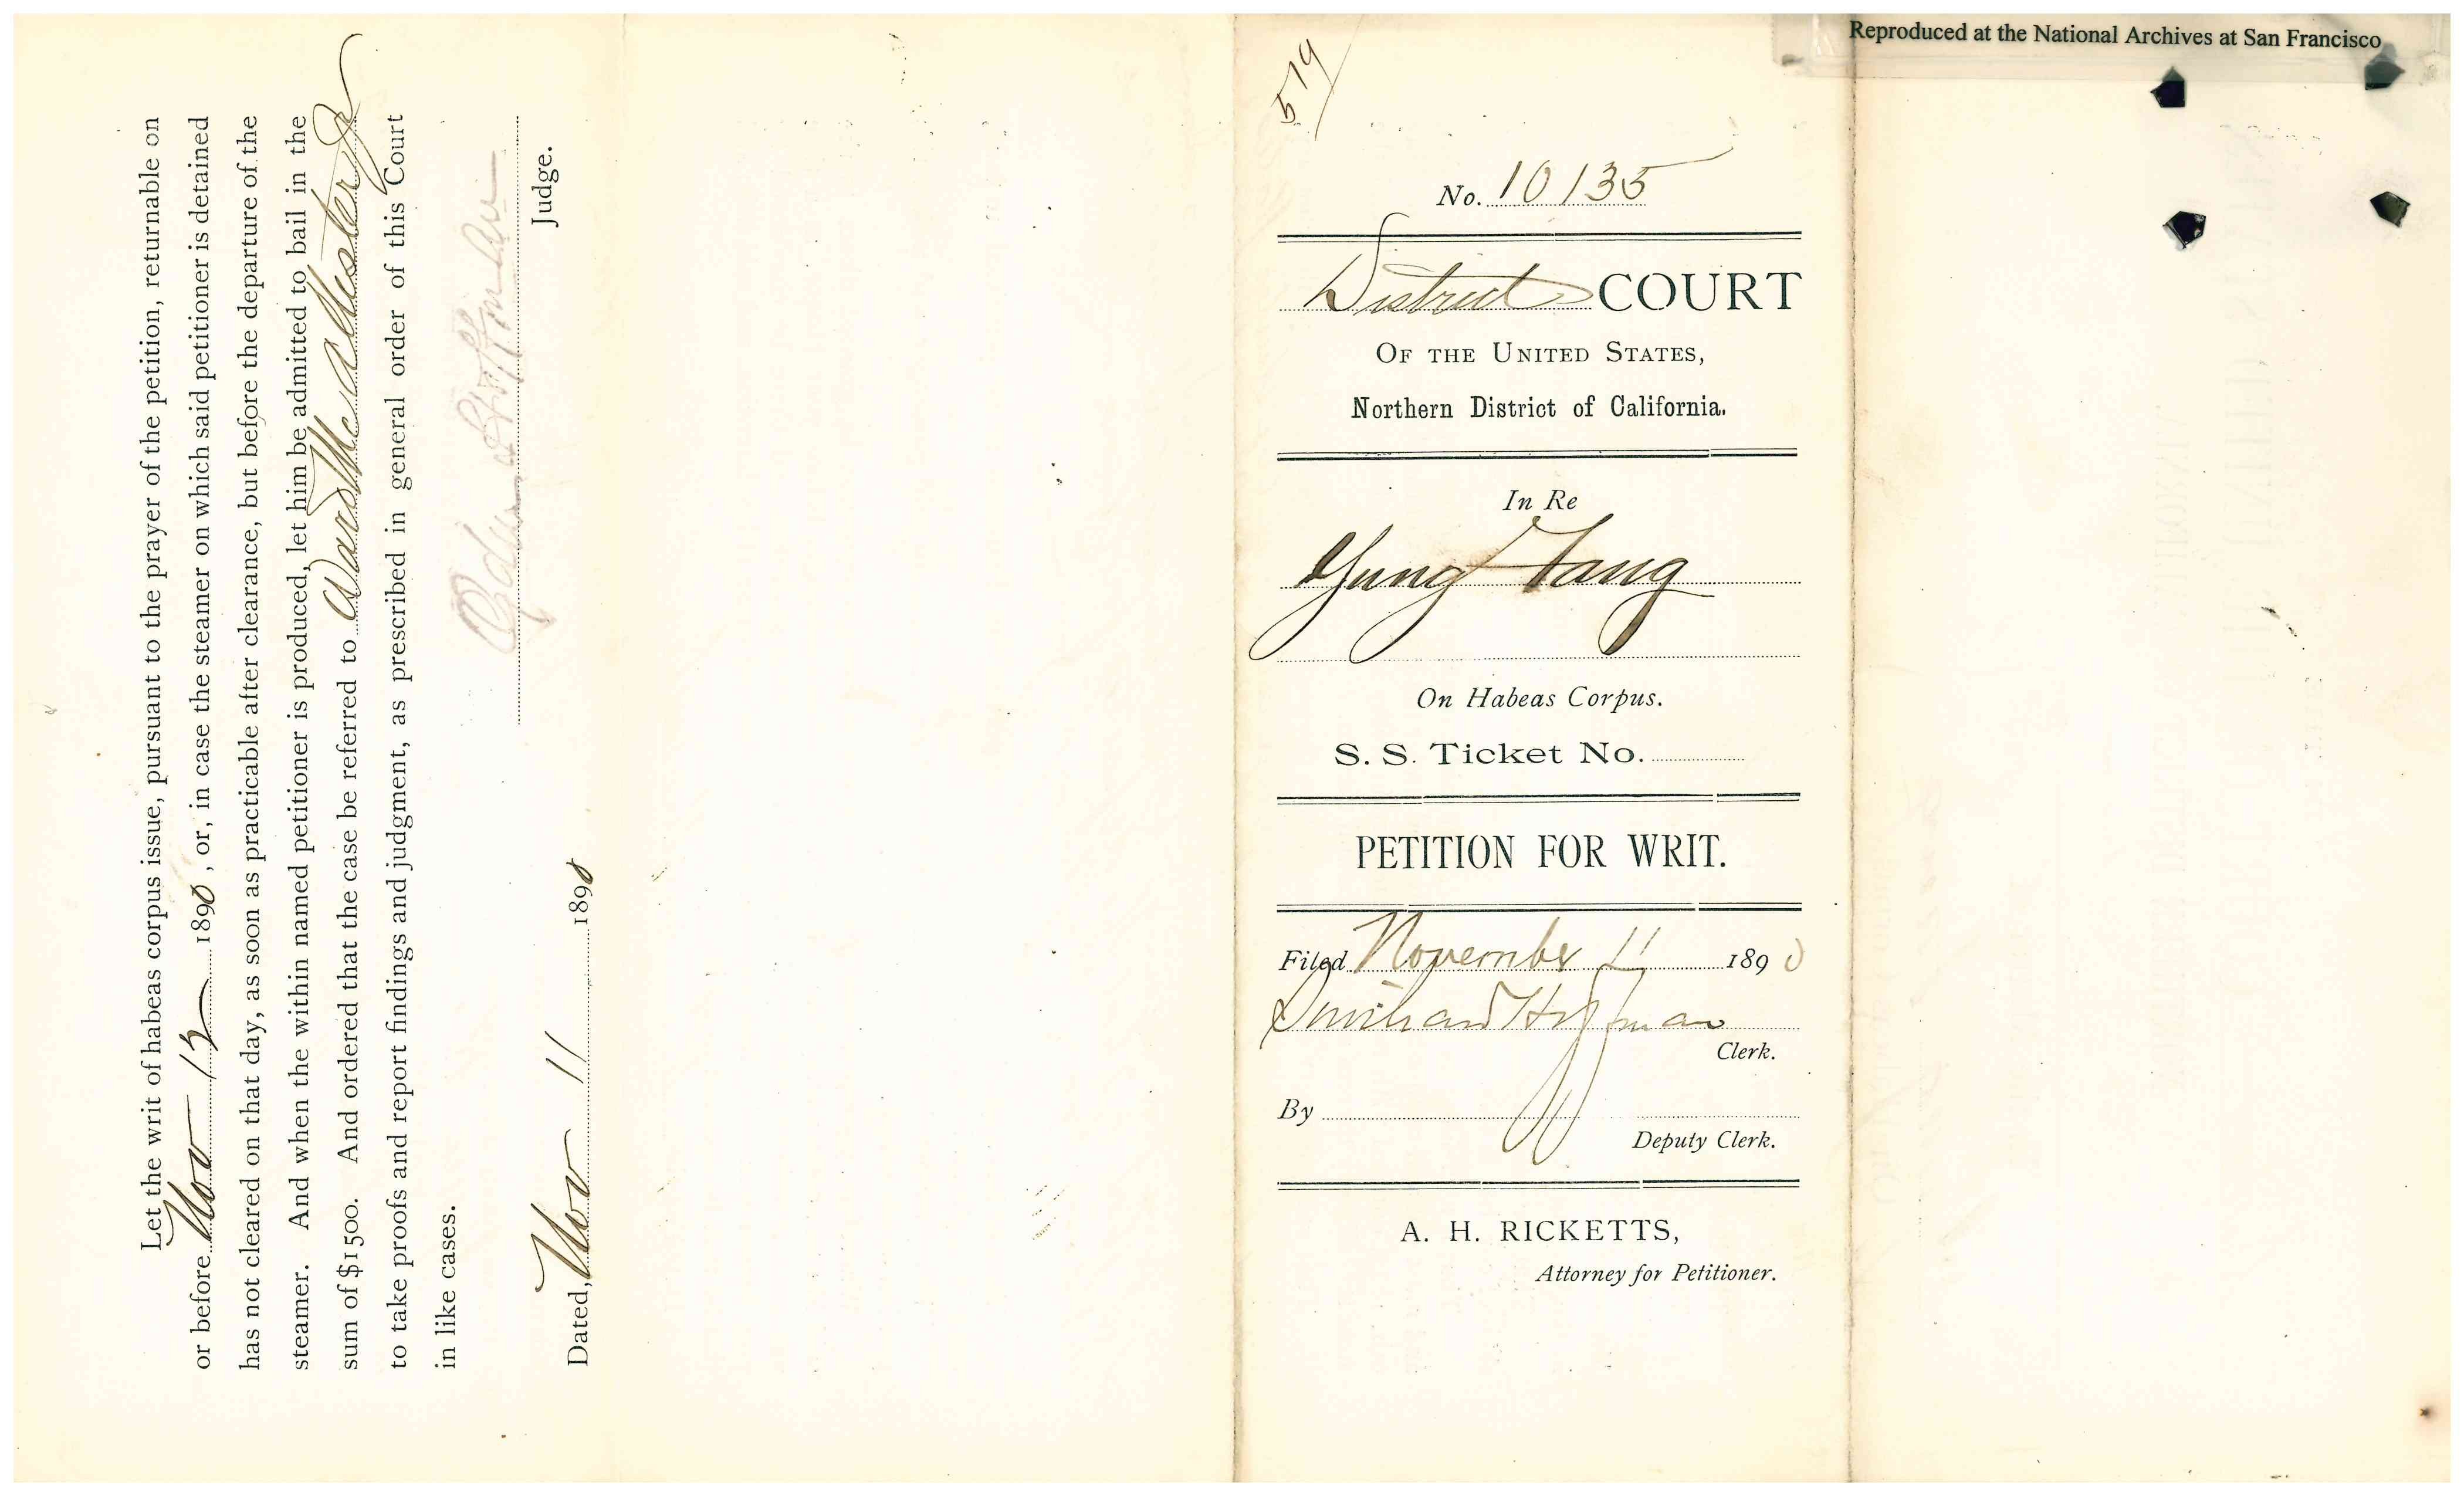 Let the writ of habeas corpus issue, pursuant to the prayer of the petition, returnable on
or before Nov 12 1890, or, in case the steamer on which said petitioner is detained
has not cleared on that day, as soon as practicable after clearance, but before the departure of the
steamer. And when the within named petitioner is produced, let him be admitted to bail in the
sum of $1500. And ordered that the case be referred to Ward McAllister Jr
to take proofs and report findings and judgment, as prescribed in general order of this Court
in like cases.
Ogden Hoffman
Judge.
Dated, Nov 11 1890
519
No. 10135
District COURT
OF THE UNITED STATES,
Northern District of California.
In Re
Yung Tang
On Habeas Corpus.
S. S. Ticket No.
PETITION FOR WRIT.
Filed November 11 1890
Southard Hoffman
Clerk.
By
Deputy Clerk.
A. H. RICKETTS,
Attorney for Petitioner.
Reproduced at the National Archives at San Francisco